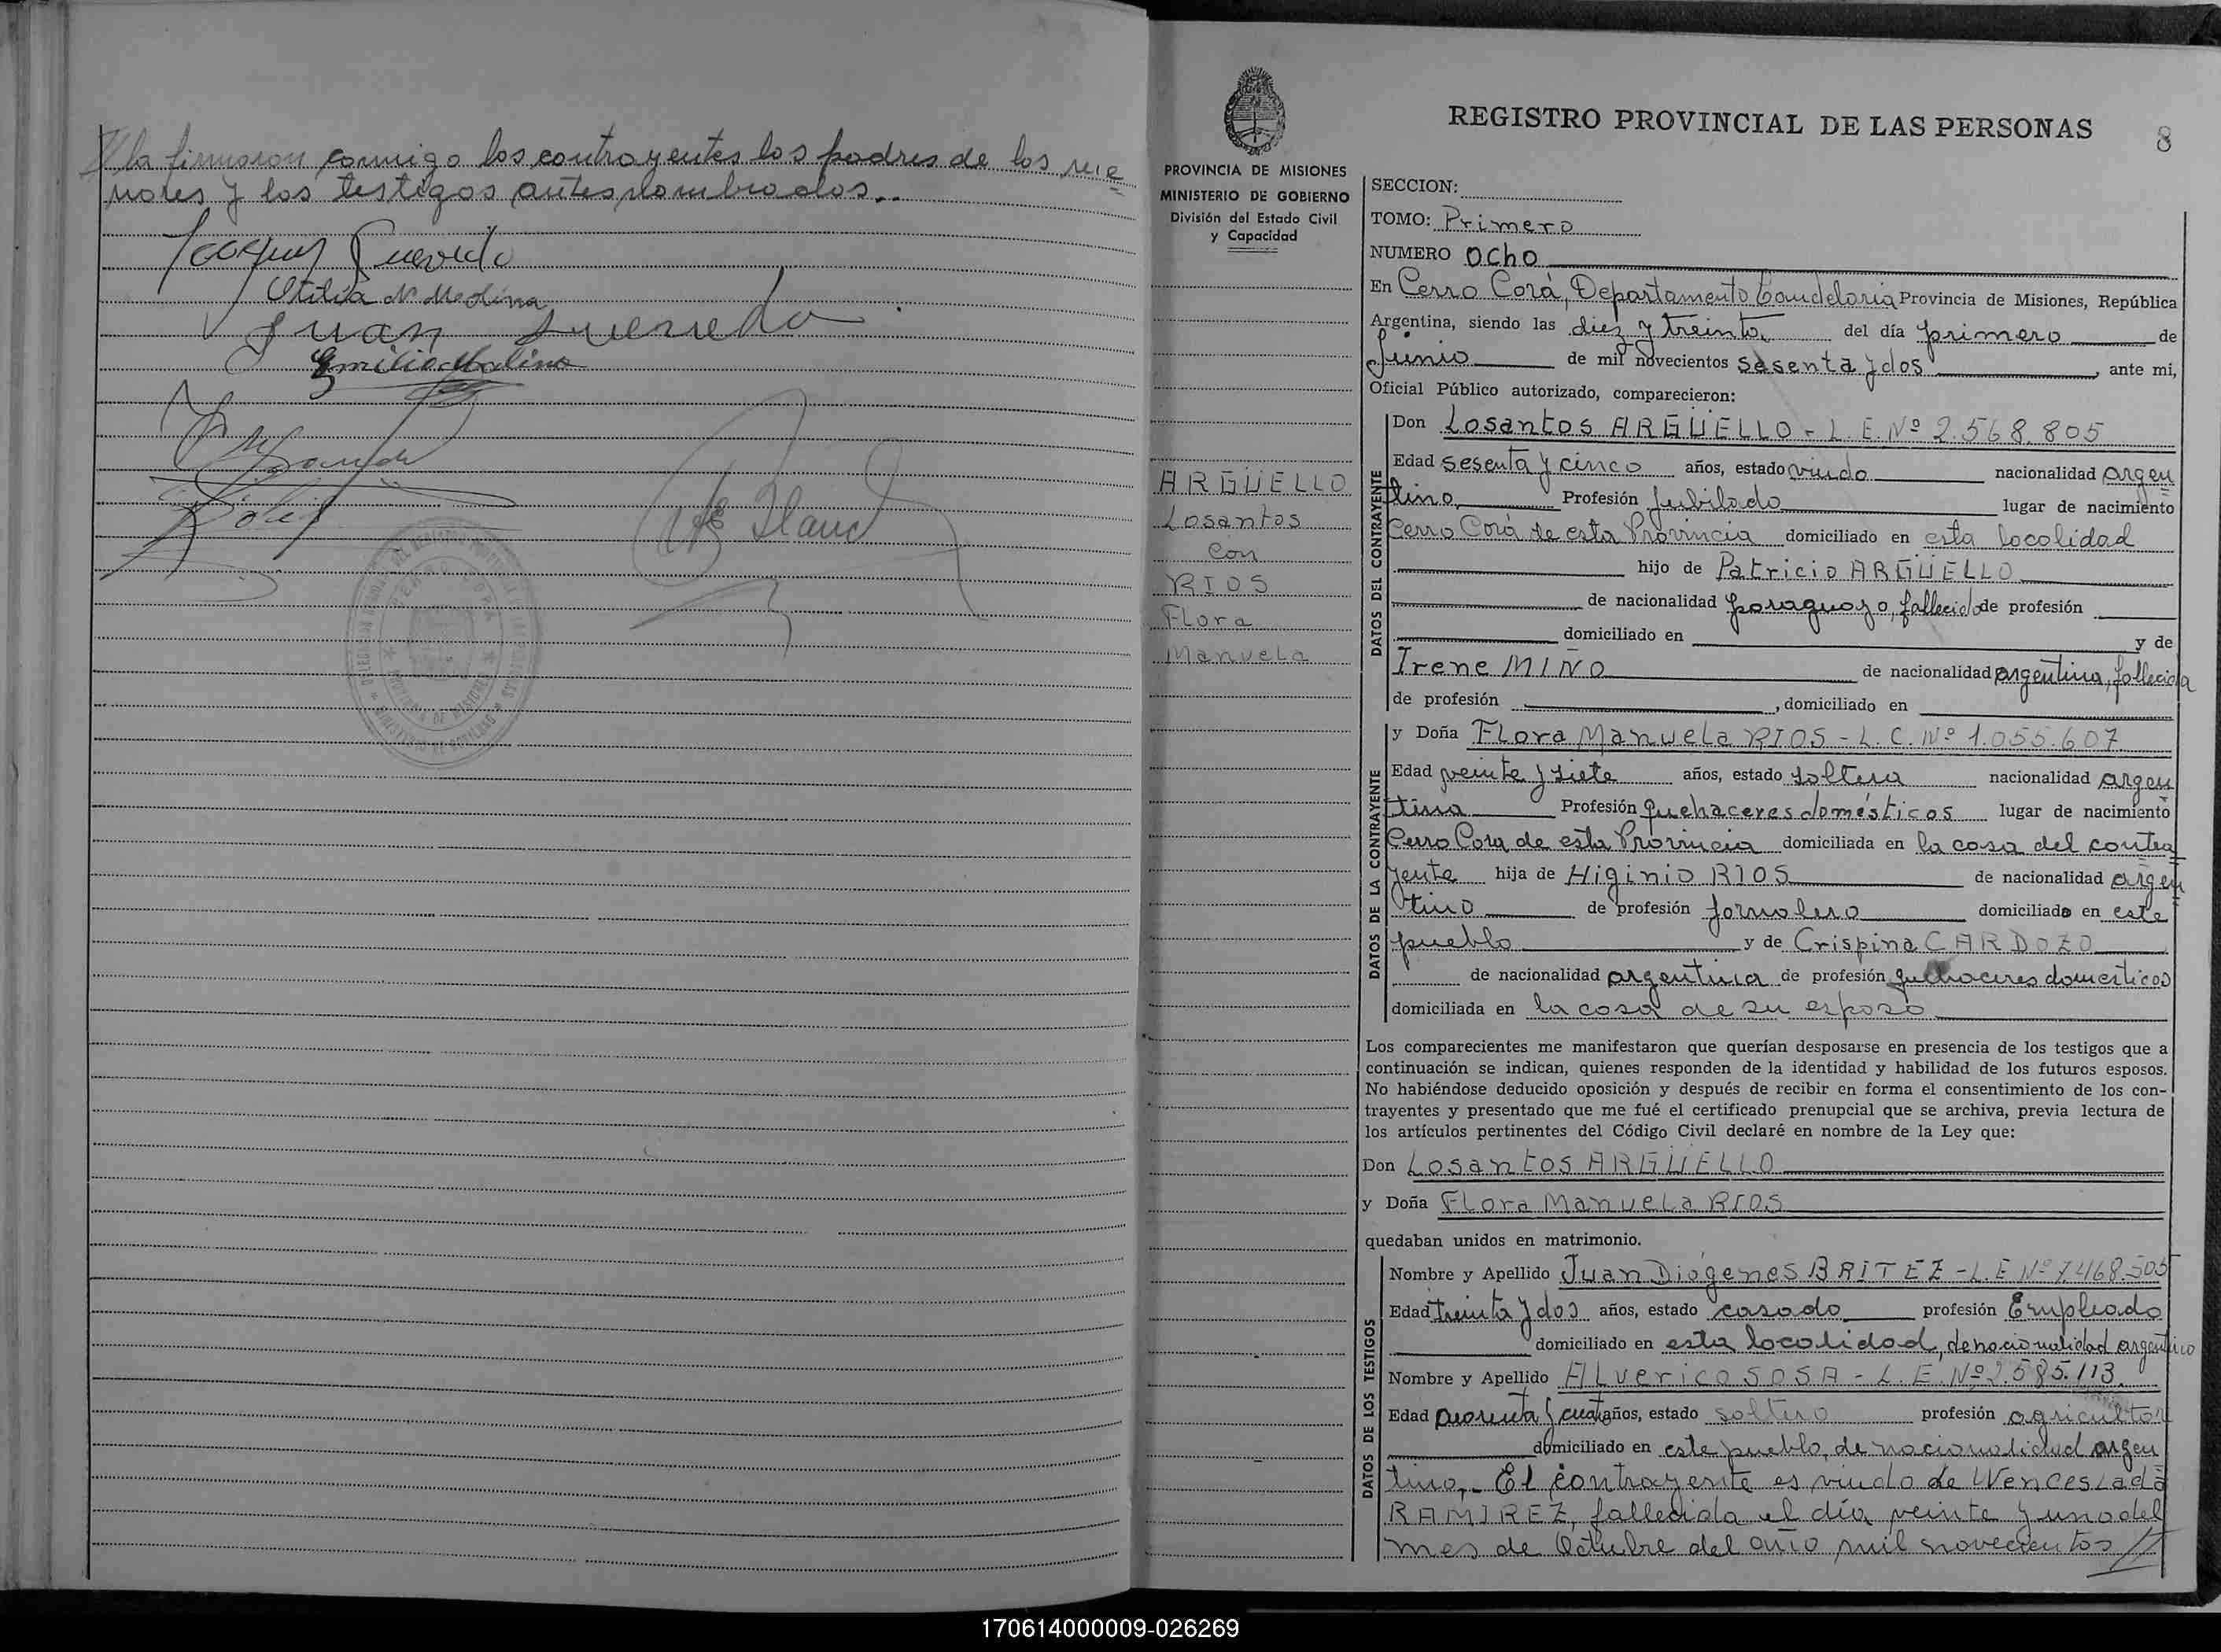 la firmaron conmigo los contrayentes los padres de los me=
nores y los testigos antes nombrados..
Joaquin Quevedo
Otilia M Medina
Juan Quevedo
Emilio Medina
REGISTRO PROVINCIAL DE LAS PERSONAS
8
PROVINCIA DE MISIONES
MINISTERIO DE GOBIERNO
División del Estado Civil
y Capacidad
ARGÜELLO
Losantos
con
RIOS
Flora
Manuela
SECCION:
TOMO: Primero
NUMERO Ocho
En Cerro Corá, Departamento Candelaria Provincia de Misiones, República
Argentina, siendo las diez y treinta, del día primero de
Junio de mil novecientos sesenta y dos, ante mi,
Oficial Público autorizado, comparecieron:
DATOS DEL CONTRAYENTE
Don Losantos ARGÜELLO - L.E. Nº 2.568.805
Edad sesenta y cinco años, estado viudo nacionalidad argen
tino Profesión Jubilado lugar de nacimiento
Cerro Corá de esta Provincia domiciliado en esta localidad
hijo de Patricio ARGÜELLO
de nacionalidad paraguayo, fallecido de profesión
domiciliado en y de
Irene MIÑO de nacionalidad argentina, fallecida
de profesión , domiciliado en
DATOS DE LA CONTRAYENTE
y Doña Flora Manuela RIOS - L.C. Nº 1.055.607
Edad veinte y siete años, estado soltera nacionalidad argen
tina Profesión quehaceres domésticos lugar de nacimiento
Cerro Corá de esta Provincia domiciliada en la casa del contra
yente hija de Higinio RIOS de nacionalidad argen
tino de profesión jornalero domiciliado en este
pueblo y de Crispina CARDOZO
de nacionalidad argentina de profesión quehaceres domesticos
domiciliada en la casa de su esposo
Los comparecientes me manifestaron que querían desposarse en presencia de los testigos que a
continuación se indican, quienes responden de la identidad y habilidad de los futuros esposos.
No habiéndose deducido oposición y después de recibir en forma el consentimiento de los con-
trayentes y presentado que me fué el certificado prenupcial que se archiva, previa lectura de
los artículos pertinentes del Código Civil declaré en nombre de la Ley que:
Don Losantos ARGÜELLO
y Doña Flora Manuela RIOS
quedaban unidos en matrimonio.
DATOS DE LOS TESTIGOS
Nombre y Apellido Juan Diógenes BRITEZ - L.E Nº 7.468.505
Edad treinta y dos años, estado casado profesión Empleado
domiciliado en esta localidad, de nacionalidad argentino
Nombre y Apellido Alverico SOSA - L.E. Nº 2.585.113.
Edad años, estado soltero profesión agricultor
domiciliado en este pueblo, de nacionalidad argen
tino,- El contrayente es viudo de Wenceslada
RAMIREZ, fallecida el día veinte y uno del
mes de Octubre del año mil novecientos //
170614000009-026269